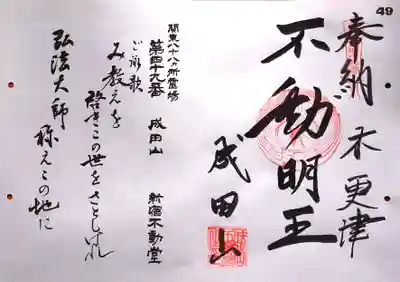 49
奉納 木更津
不動明王
成田山
関東八十八カ所霊場
第四十九番 成田山 新宿不動堂
ご詠歌
み教えを
この世をさとしけれ
弘法大師
この地に